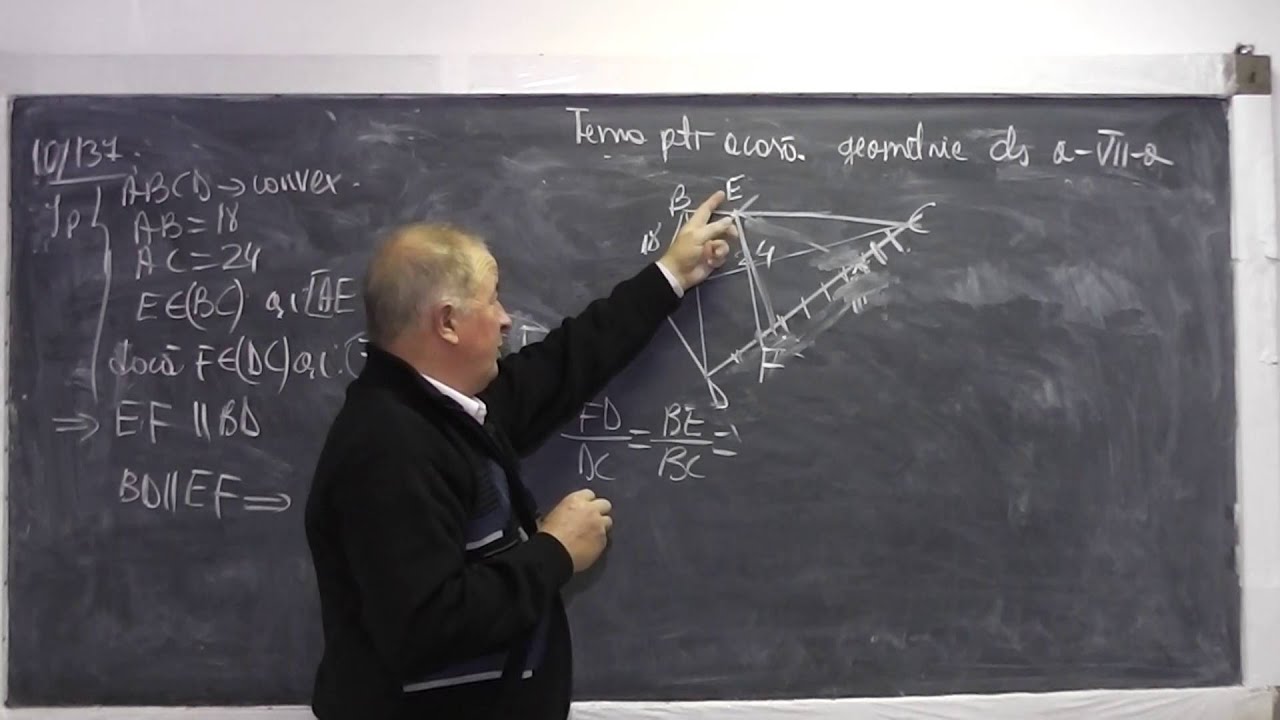 10/137.
Tema ptr acasă. geometrie cls a-VII-a
ABCD → convex.
Ip
AB = 18
AC = 24
E∈(BC) a.î. [AE
dacă F∈(DC) a.î. (
⇒ EF ∥ BD
BD∥EF ⇒
B E
18
24
C
F
D
FD/DC = BE/BC =